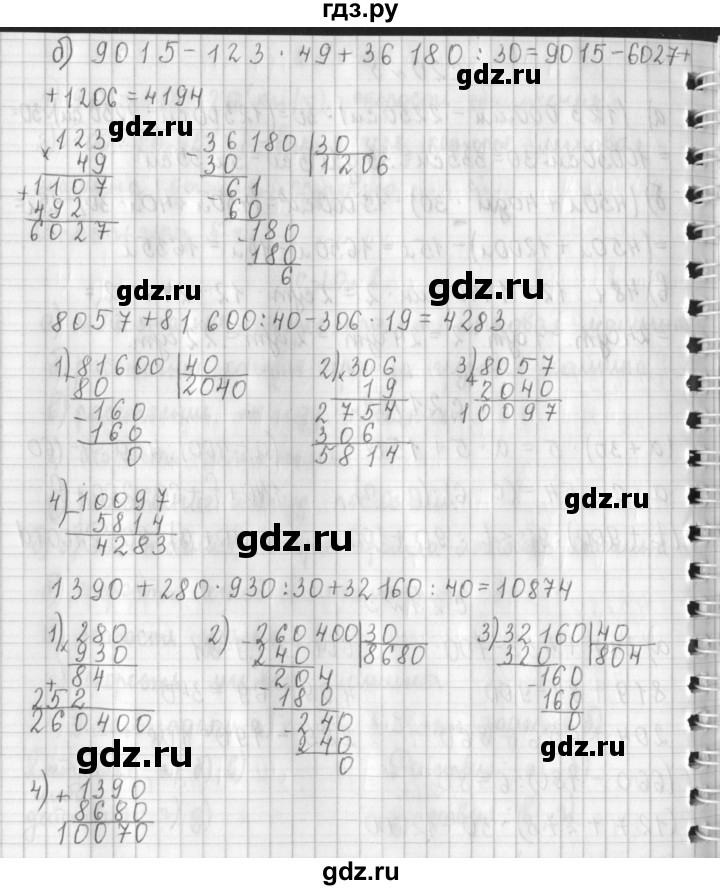 гдз.ру
б) 9015-123·49+36 180:30=9015-6027+
gdz.ru
+1206=4194
gdz.ru
×123
49
+1107
492
6027
-36180 30
30 1206
61
-60
-180
180
6
gdz.ru
gdz.ru
8057+81 600:40-306·19=4283
1) -81600 40
80 2040
-160
160
0
2) ×306
19
2754
306
5814
3) +8057
2040
10097
4) -10097
5814
4283
gdz.ru
gdz.ru
1390+280·930:30+32160:40=10874
1) ×280
930
+84
252
260400
2) -260400 30
240 8680
-204
180
-240
240
0
3) 32160 40
320 804
-160
160
0
gdz.ru
gdz.ru
4) +1390
8680
10070
gdz.ru
gdz.ru